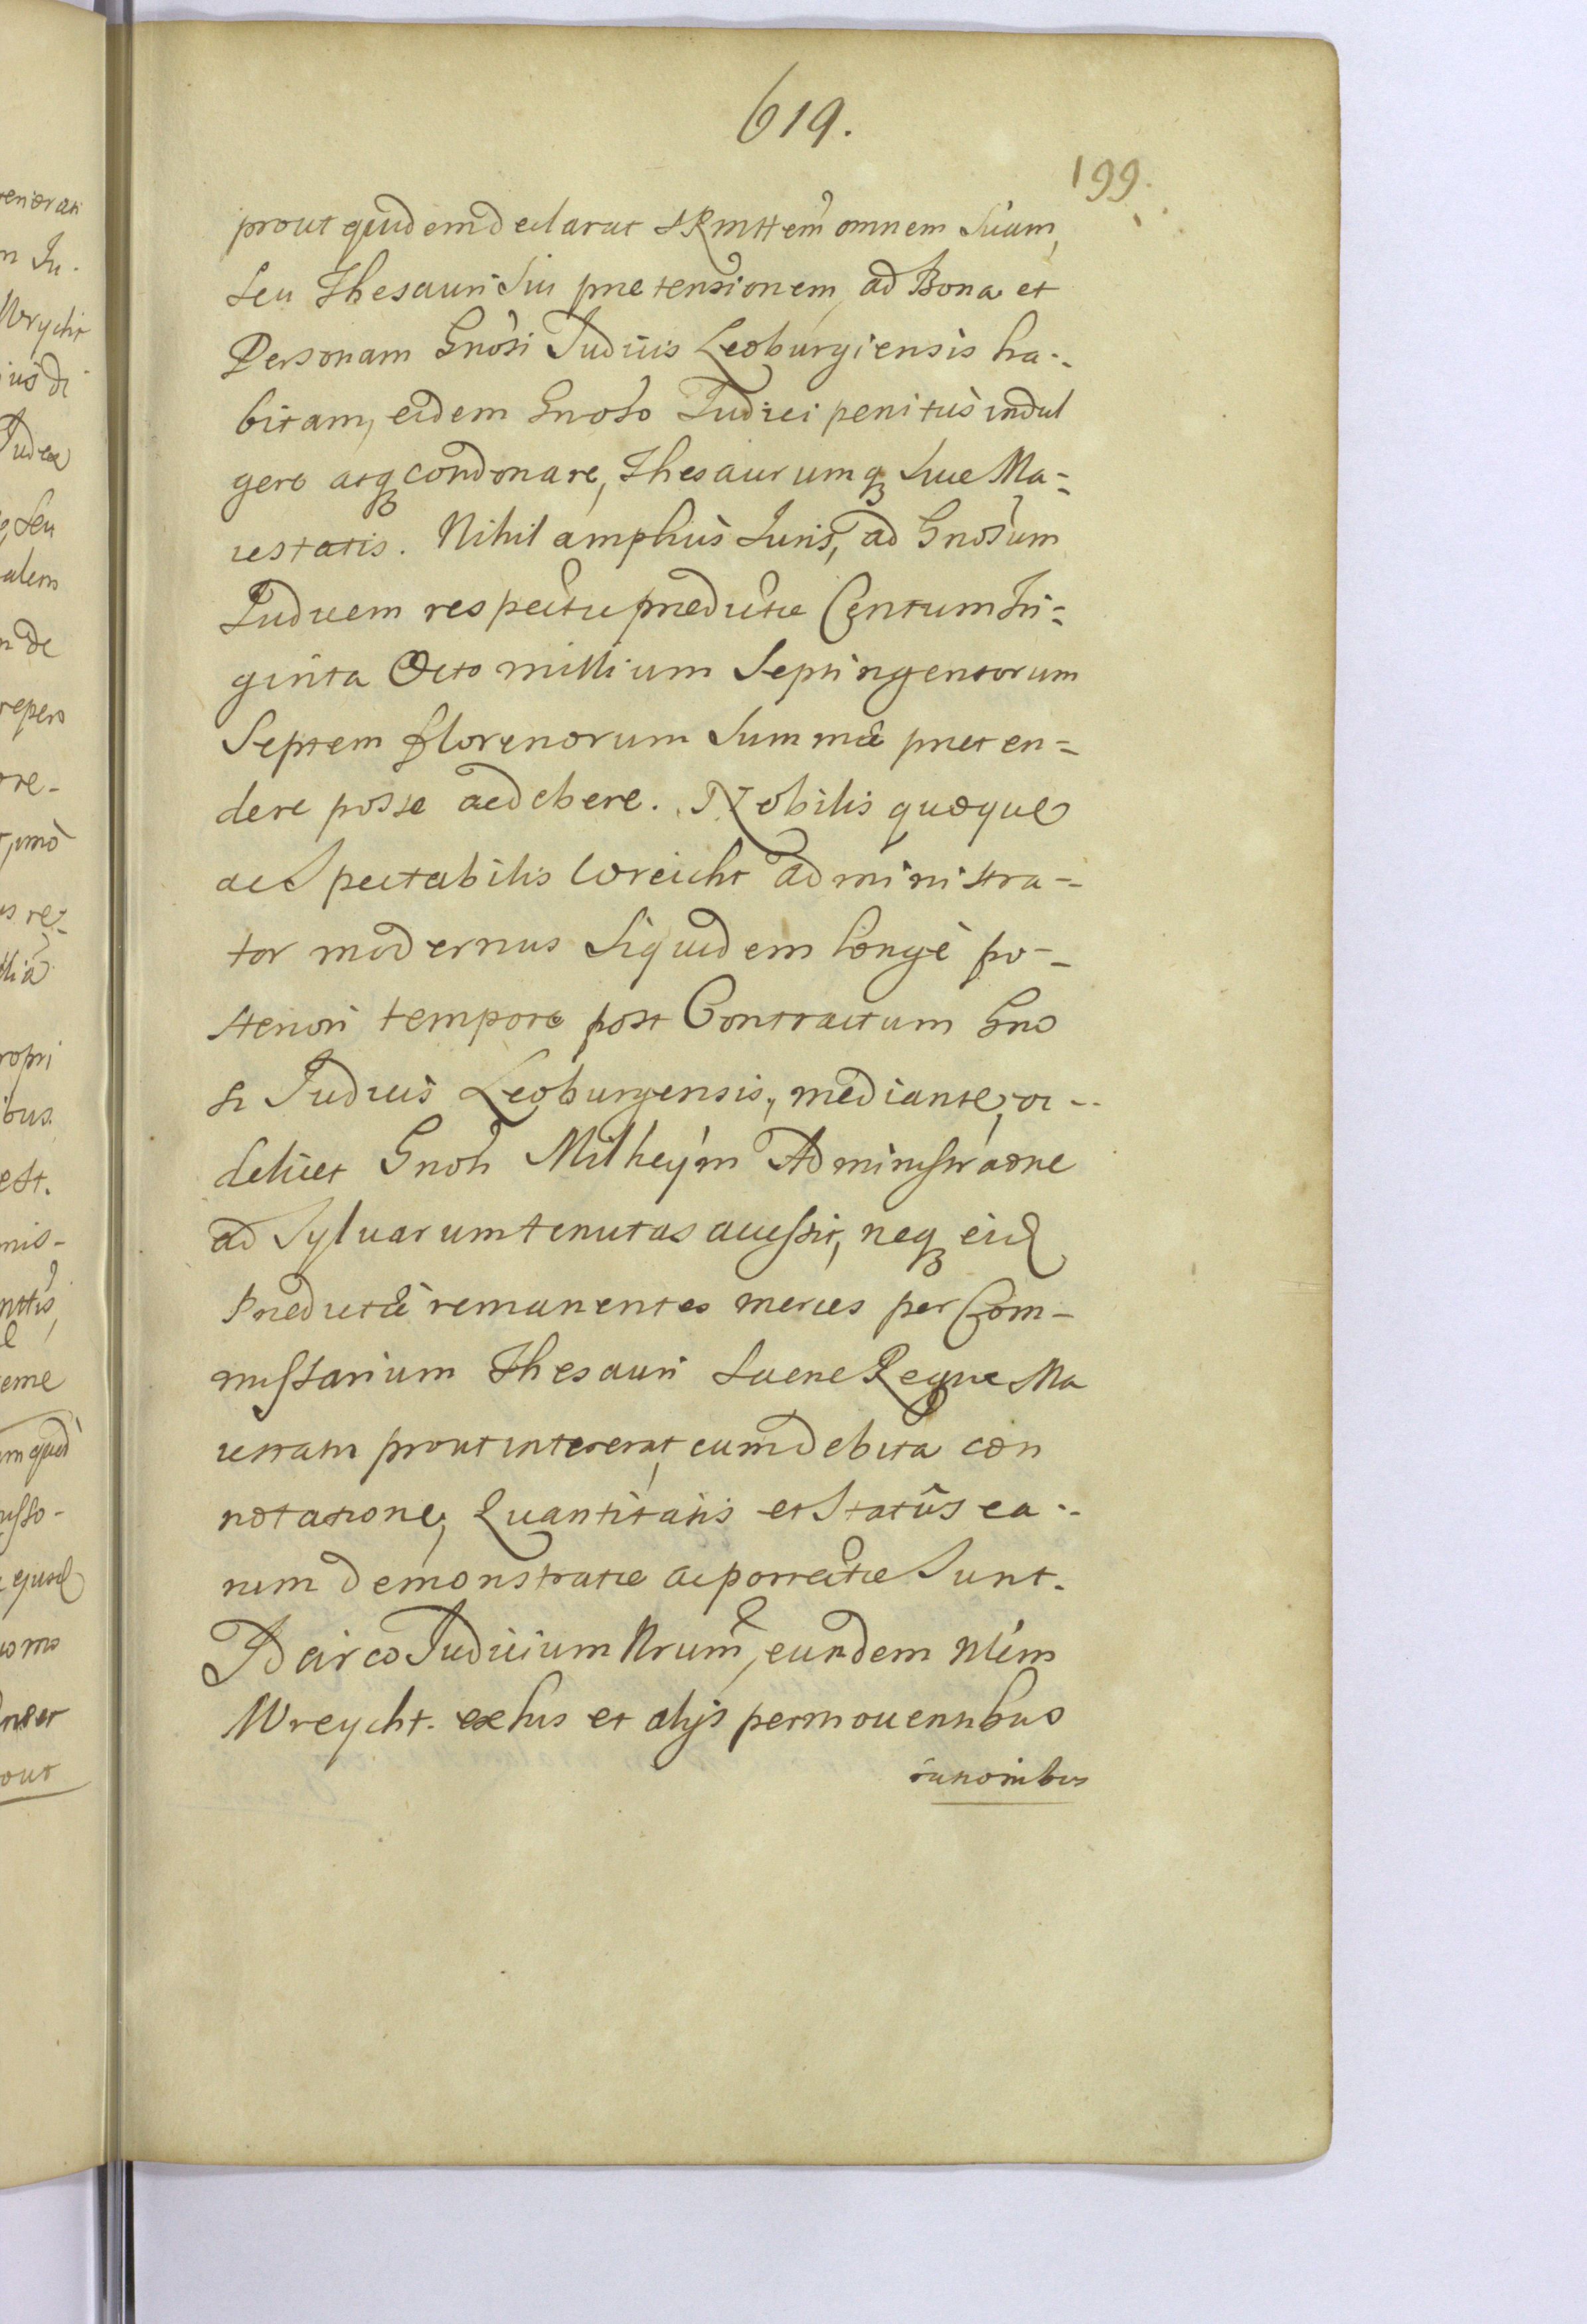 619.
199.
prout quidem declarat SRMttem omnem Suam,
Seu Thesauri Sui prætensionem, ad Bona et
Personam Gnosi Judicis Leoburgiensis ha-
bitam, eidem Gnoso Judici penitùs indul
gere atq condonare, Thesaurumq Suæ Ma=
iestatis. Nihil ampliùs Iuris, ad Gnosum
Judicem respectu prædictæ Centum Tri=
ginta Octo millium Septingentorum
Septem florenorum Summæ præten=
dere posse ac debere. Nobilis quoque
ac Spectabilis Wreicht administra-
tor modernus Siquidem longè po-
steriori tempore post Contractum Gno
si Judicis Leoburgensis, mediante, vi-
delicet Gnosi Milheym Administraõne
ad Sylvarum tenutas accessit, neq eid
Prædictæ remanentes merces per Com-
missarium Thesauri Sacræ Regiæ Ma
iestatis prout intererat, cum debita con
notatione, Quantitatis et Statûs ea-
rum demonstratæ ac porrectæ Sunt.
Idcirco Judicium Nrum, eundem Nlem
Wreycht. ex his et alijs permoventibus
rationibus